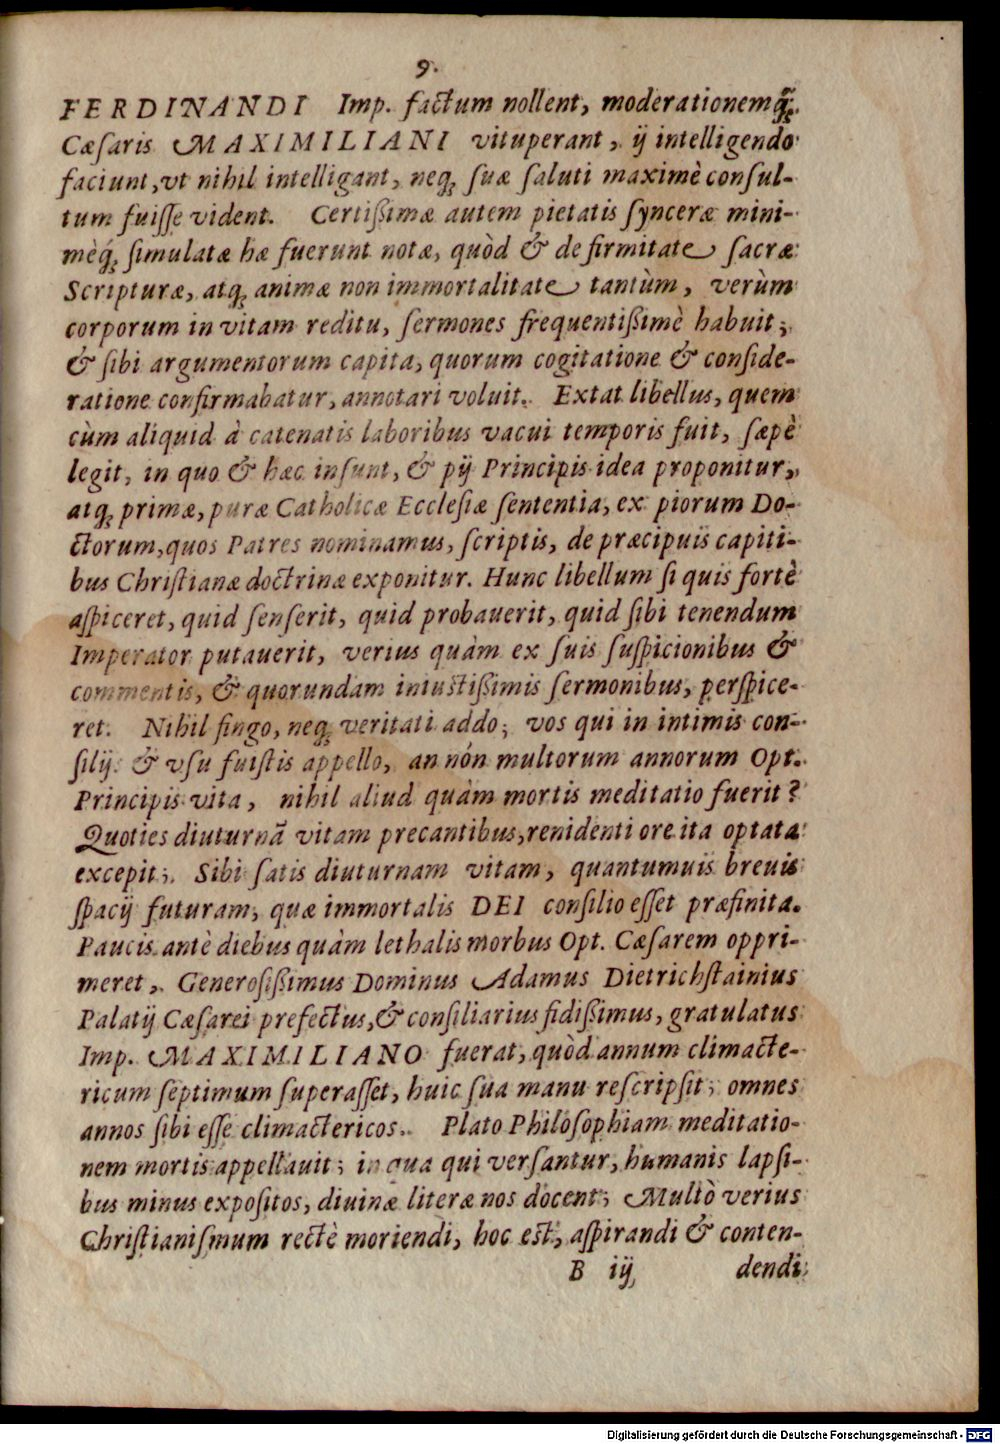 9.
FERDINANDI Imp. factum nollent, moderationemq́;
Cæſaris MAXIMILIANI vituperant, ij intelligendo
faciunt, vt nihil intelligant, neq; ſuæ ſaluti maximè conſul-
tum fuiſſe vident. Certißimæ autem pietatis ſynceræ mini-
mèq́; ſimulatæ hæ fuerunt notæ, quòd & de firmitate ſacræ
Scripturæ, atq; animæ non immortalitate tantùm, verùm
corporum in vitam reditu, ſermones frequentißimè habuit;
& ſibi argumentorum capita, quorum cogitatione & conſide-
ratione confirmabatur, annotari voluit. Extat libellus, quem
cùm aliquid à catenatis laboribus vacui temporis fuit, ſæpè
legit, in quo & hæc inſunt, & pij Principis idea proponitur,
atq; primæ, puræ Catholicæ Eccleſiæ ſententia, ex piorum Do-
ctorum, quos Patres nominamus, ſcriptis, de præcipuis capiti-
bus Chriſtianæ doctrinæ exponitur. Hunc libellum ſi quis fortè
aſpiceret, quid ſenſerit, quid probauerit, quid ſibi tenendum
Imperator putauerit, verius quàm ex ſuis ſuſpicionibus &
commentis, & quorundam iniuſtißimis ſermonibus, perſpice-
ret. Nihil fingo, neq; veritati addo; vos qui in intimis con-
ſilijs & vſu fuiſtis appello, an nón multorum annorum Opt.
Principis vita, nihil aliud quàm mortis meditatio fuerit?
Quoties diuturnã vitam precantibus, renidenti ore ita optata
excepit; Sibi ſatis diuturnam vitam, quantumuis breuis
ſpacij futuram, quæ immortalis DEI conſilio eſſet præfinita.
Paucis antè diebus quàm lethalis morbus Opt. Cæſarem oppri-
meret, Generoſißimus Dominus Adamus Dietrichſtainius
Palatij Cæſarei prefectus, & conſiliarius fidißimus, gratulatus
Imp. MAXIMILIANO fuerat, quòd annum climacte-
ricum ſeptimum ſuperaſſet, huic ſua manu reſcripſit; omnes
annos ſibi eſſe climactericos. Plato Philoſophiam meditatio-
nem mortis appellauit; in qua qui verſantur, humanis lapſi-
bus minus expoſitos, diuinæ literæ nos docent; Multò verius
Chriſtianiſmum rectè moriendi, hoc eſt, aſpirandi & conten-
B iij dendi
Digitalisierung gefördert durch die Deutsche Forschungsgemeinschaft - DFG